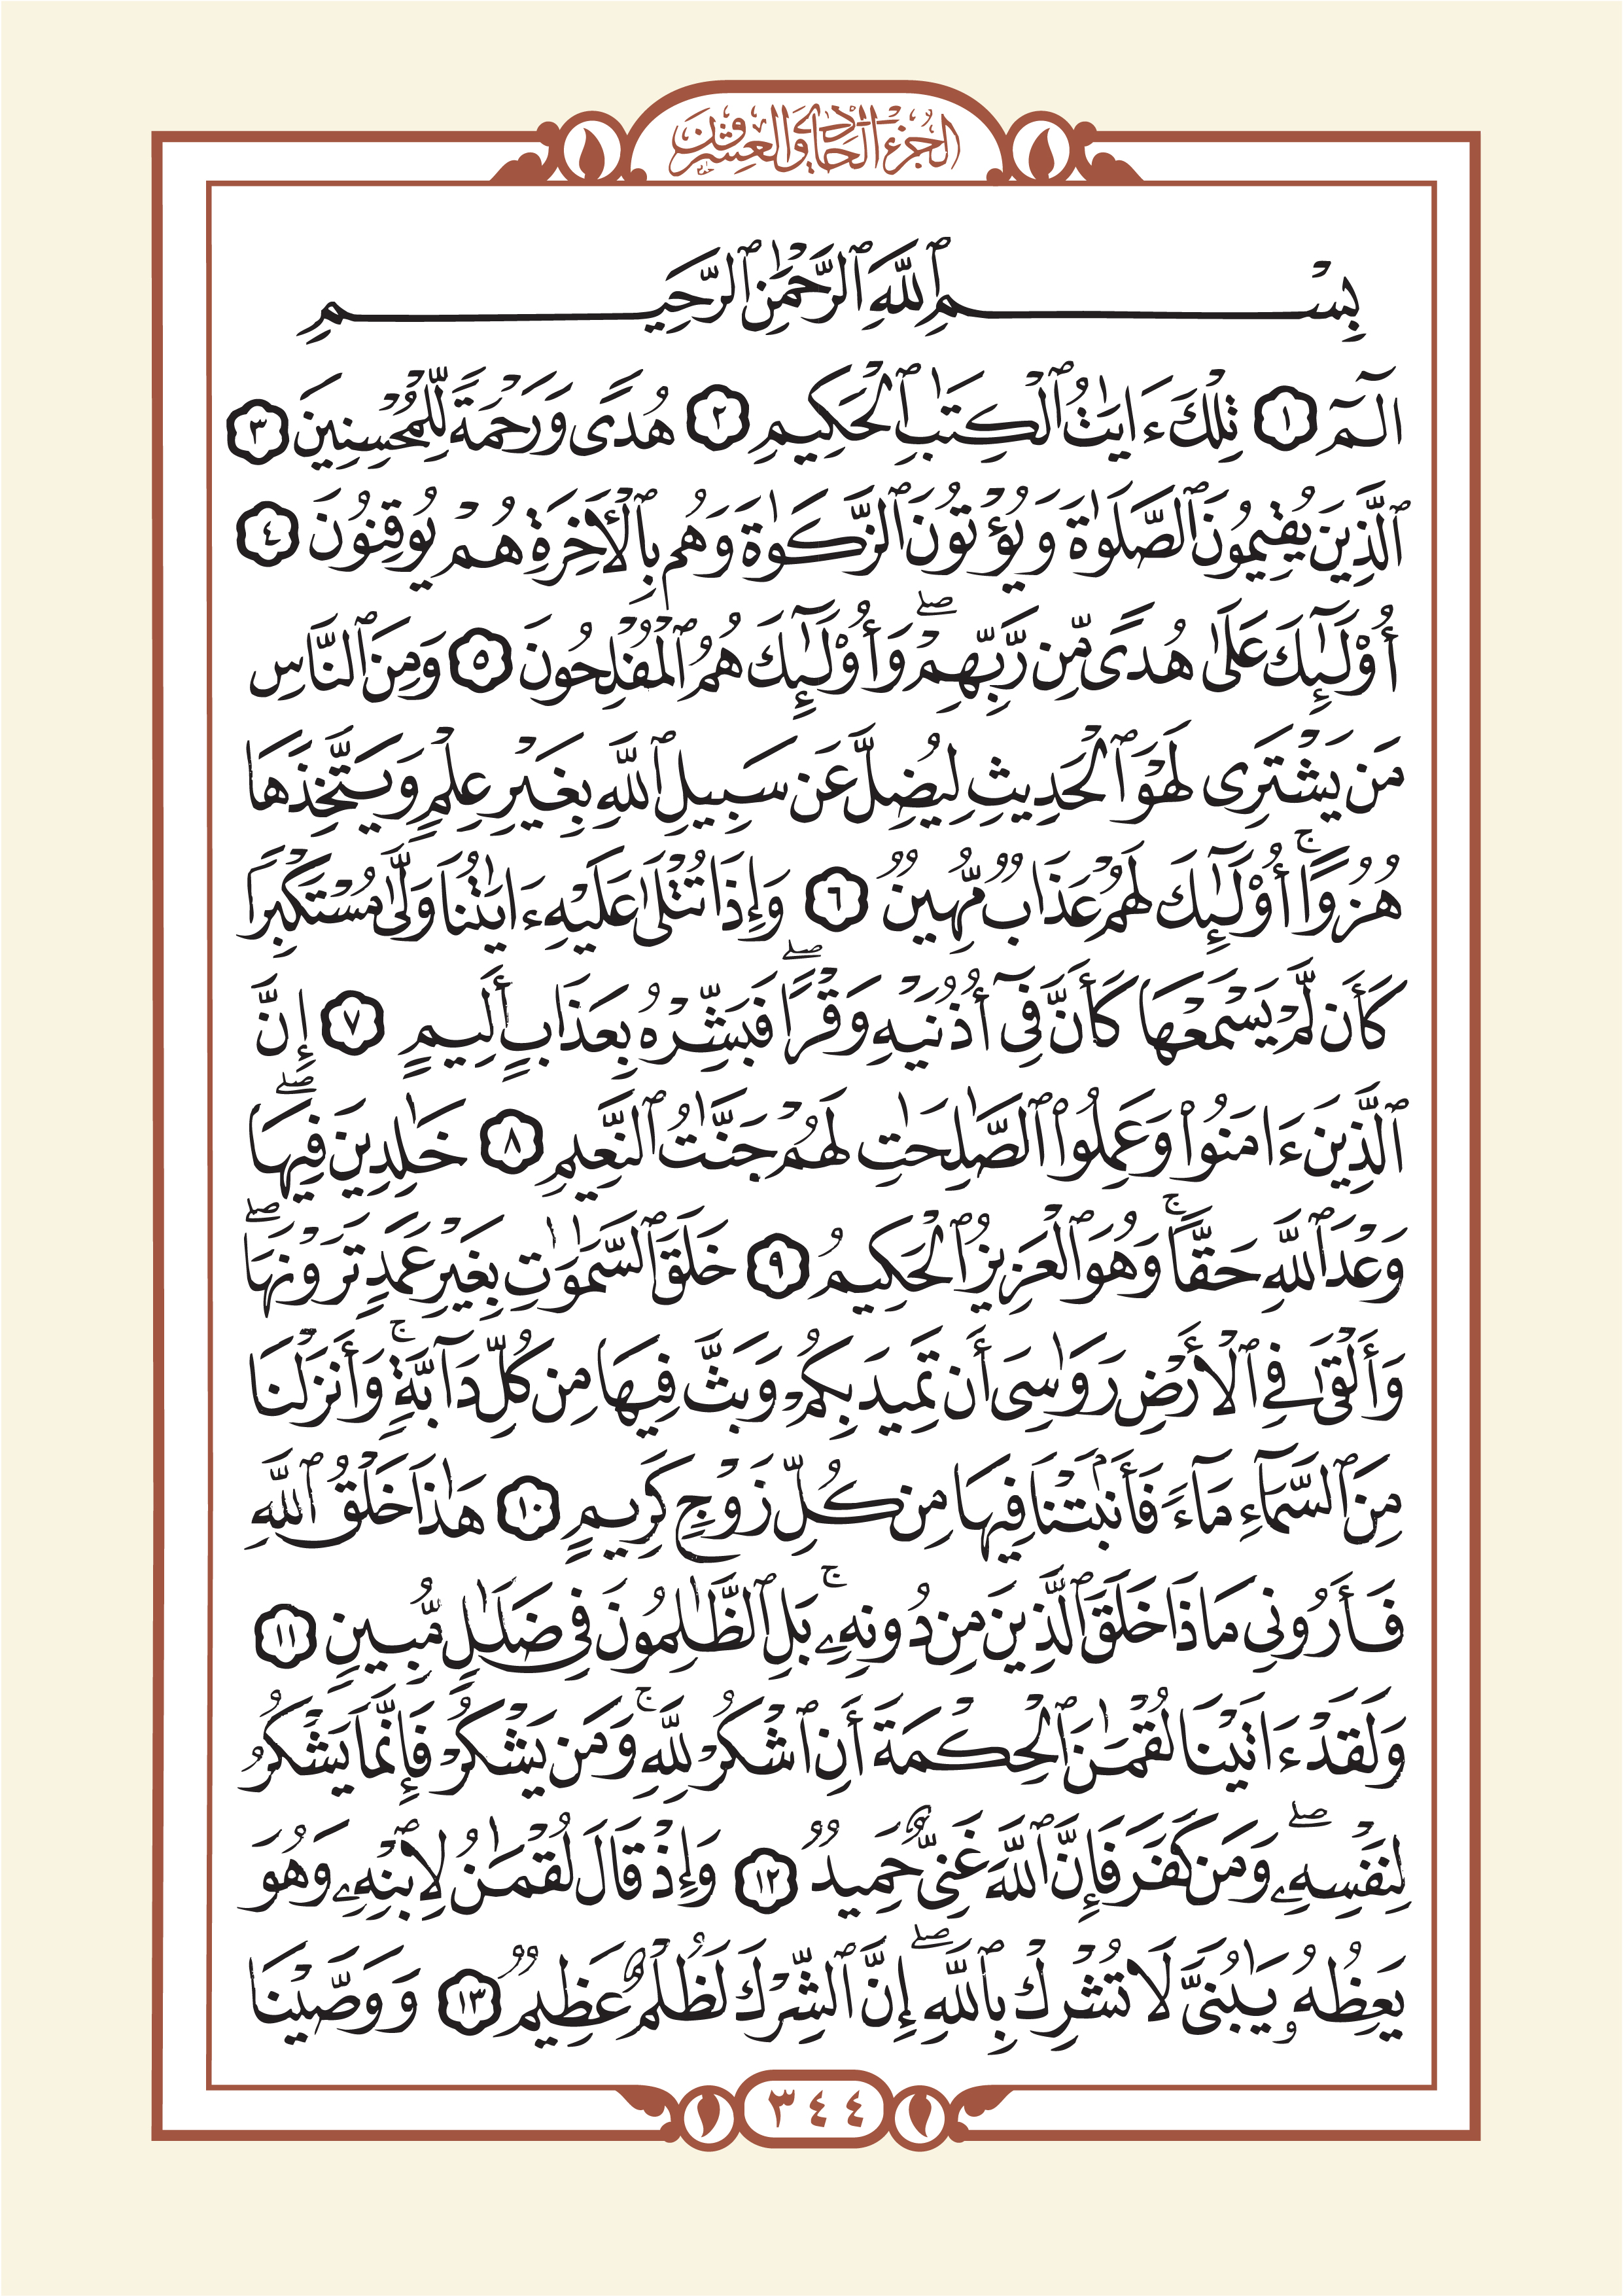 الجزء الحادي والعشرون
بِسْمِ ٱللَّهِ ٱلرَّحْمَٰنِ ٱلرَّحِيمِ
الٓمٓ ١ تِلْكَ ءَايَٰتُ ٱلْكِتَٰبِ ٱلْحَكِيمِ ٢ هُدًى وَرَحْمَةً لِّلْمُحْسِنِينَ ٣
ٱلَّذِينَ يُقِيمُونَ ٱلصَّلَوٰةَ وَيُؤْتُونَ ٱلزَّكَوٰةَ وَهُم بِٱلْأَخِرَةِ هُمْ يُوقِنُونَ ٤
أُوْلَٰٓئِكَ عَلَىٰ هُدًى مِّن رَّبِّهِمْۖ وَأُوْلَٰٓئِكَ هُمُ ٱلْمُفْلِحُونَ ٥ وَمِنَ ٱلنَّاسِ
مَن يَشْتَرِى لَهْوَ ٱلْحَدِيثِ لِيُضِلَّ عَن سَبِيلِ ٱللَّهِ بِغَيْرِ عِلْمٍ وَيَتَّخِذَهَا
هُزُوًاۚ أُوْلَٰٓئِكَ لَهُمْ عَذَابٌ مُّهِينٌ ٦ وَإِذَا تُتْلَىٰ عَلَيْهِ ءَايَٰتُنَا وَلَّىٰ مُسْتَكْبِرًا
كَأَن لَّمْ يَسْمَعْهَا كَأَنَّ فِىٓ أُذُنَيْهِ وَقْرًاۖ فَبَشِّرْهُ بِعَذَابٍ أَلِيمٍ ٧ إِنَّ
ٱلَّذِينَ ءَامَنُوا۟ وَعَمِلُوا۟ ٱلصَّٰلِحَٰتِ لَهُمْ جَنَّٰتُ ٱلنَّعِيمِ ٨ خَٰلِدِينَ فِيهَاۖ
وَعْدَ ٱللَّهِ حَقًّاۚ وَهُوَ ٱلْعَزِيزُ ٱلْحَكِيمُ ٩ خَلَقَ ٱلسَّمَٰوَٰتِ بِغَيْرِ عَمَدٍ تَرَوْنَهَاۖ
وَأَلْقَىٰ فِى ٱلْأَرْضِ رَوَٰسِىَ أَن تَمِيدَ بِكُمْ وَبَثَّ فِيهَا مِن كُلِّ دَآبَّةٍۚ وَأَنزَلْنَا
مِنَ ٱلسَّمَآءِ مَآءً فَأَنۢبَتْنَا فِيهَا مِن كُلِّ زَوْجٍ كَرِيمٍ ١٠ هَٰذَا خَلْقُ ٱللَّهِ
فَأَرُونِى مَاذَا خَلَقَ ٱلَّذِينَ مِن دُونِهِۦۚ بَلِ ٱلظَّٰلِمُونَ فِى ضَلَٰلٍ مُّبِينٍ ١١
وَلَقَدْ ءَاتَيْنَا لُقْمَٰنَ ٱلْحِكْمَةَ أَنِ ٱشْكُرْ لِلَّهِۚ وَمَن يَشْكُرْ فَإِنَّمَا يَشْكُرُ
لِنَفْسِهِۦۖ وَمَن كَفَرَ فَإِنَّ ٱللَّهَ غَنِىٌّ حَمِيدٌ ١٢ وَإِذْ قَالَ لُقْمَٰنُ لِٱبْنِهِۦ وَهُوَ
يَعِظُهُۥ يَٰبُنَىَّ لَا تُشْرِكْ بِٱللَّهِۖ إِنَّ ٱلشِّرْكَ لَظُلْمٌ عَظِيمٌ ١٣ وَوَصَّيْنَا
٣٤٤